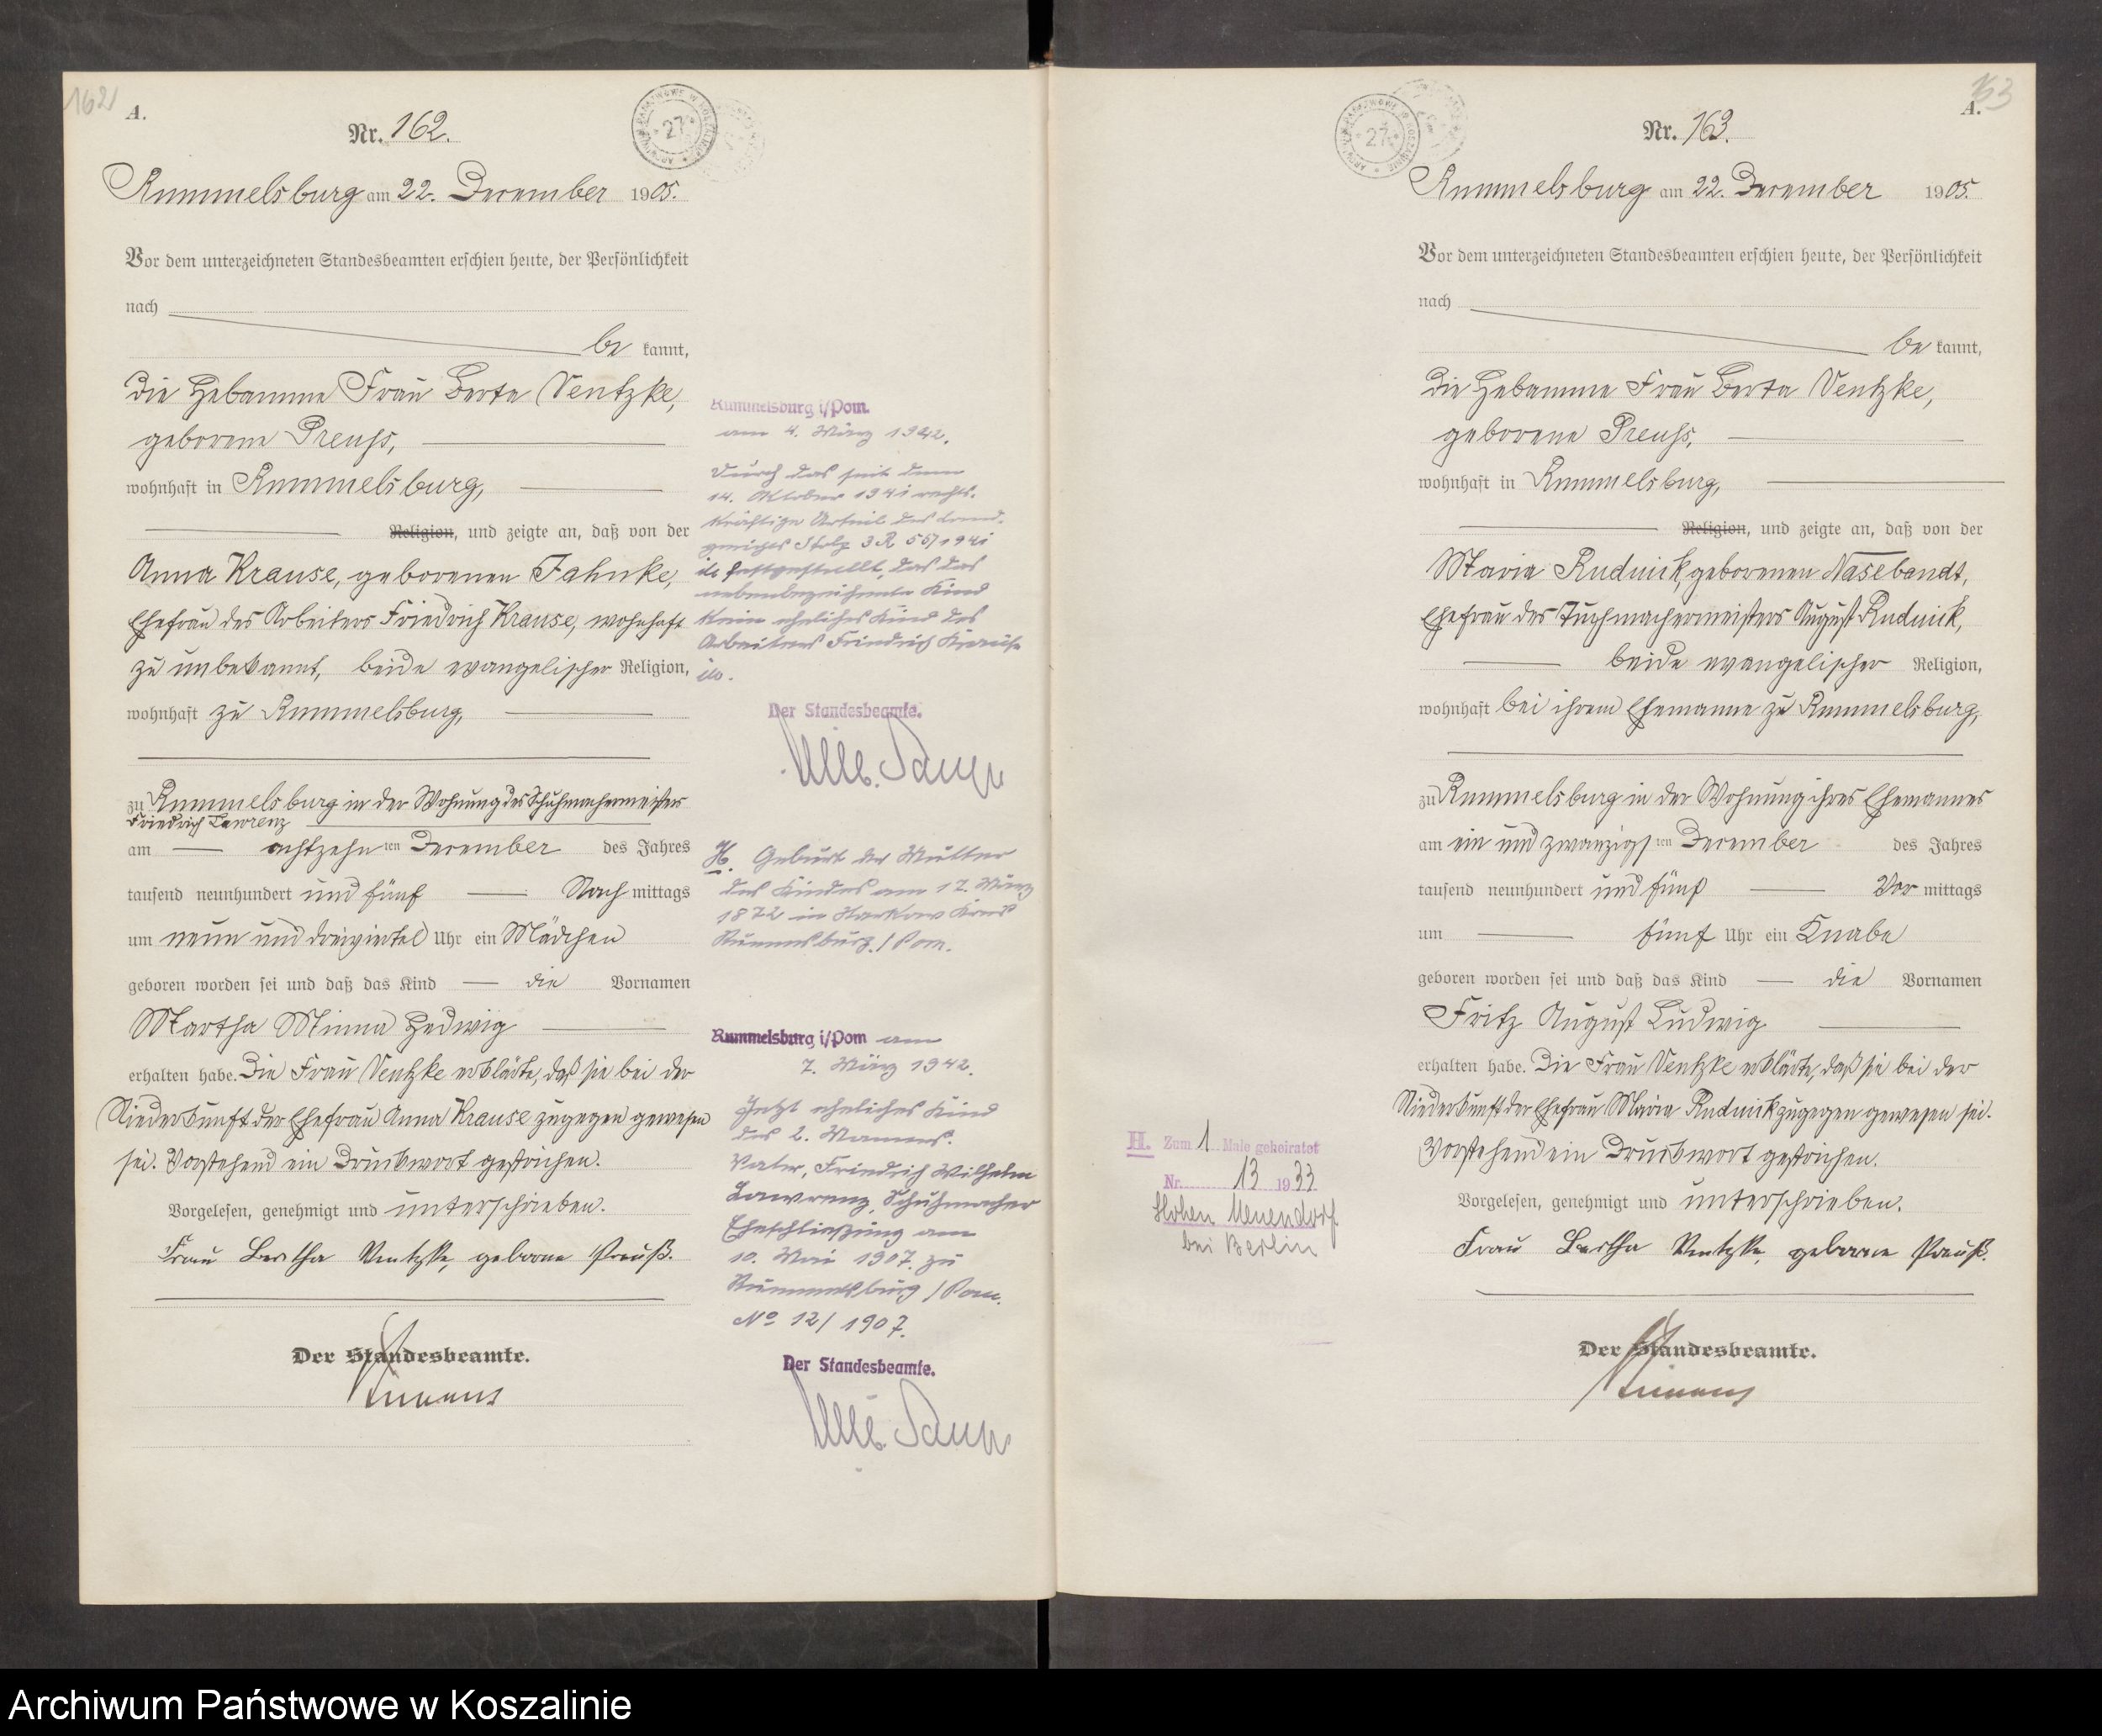 162
A.
Nr. 162.
Rummelsburg am 22. December 1905.
Vor dem unterzeichneten Standesbeamten erschien heute, der Persönlichkeit
nach
be kannt,
die Hebamme Frau Berta Ventzke,
geborene Preuß,
wohnhaft in Rummelsburg,
Religion, und zeigte an, daß von der
Anna Krause, geborenen Jahnke,
Ehefrau des Arbeiters Friedrich Krause, wohnhaft
zu unbekannt, beide evangelischer Religion,
wohnhaft zu Rummelsburg,
zu Rummelsburg in der Wohnung des Schuhmachermeisters
Friedrich Lawrenz
am achtzehn ten December des Jahres
tausend neunhundert und fünf Nach mittags
um neun und dreiviertel Uhr ein Mädchen
geboren worden sei und daß das Kind die Vornamen
Martha Minna Hedwig
erhalten habe. Die Frau Ventzke erklärte, daß sie bei der
Niederkunft der Ehefrau Anna Krause zugegen gewesen
sei. Vorstehend ein Druckwort gestrichen.
Vorgelesen, genehmigt und unterschrieben.
Frau Bertha Ventzke, geborne Preuß.
Der Standesbeamte.
Rummelsburg i/Pom.
am 4. März 1942.
Durch das seit dem
14. Oktober 1941 rechts-
kräftige Urteil des Land-
gerichts Stolp 3 R 56/1941
ist festgestellt, das das
nebenbezeichnete Kind
kein eheliches Kind des
Arbeiters Friedrich Krause
ist.
Der Standesbeamte.
H. Geburt der Mutter
des Kindes am 17. März
1872 in Kreis
Rummelsburg / Pom.
Rummelsburg i/Pom am
7. März 1942.
Jetzt eheliches Kind
des 2. Mannes.
Vater, Friedrich Wilhelm
Lawrenz, Schuhmacher
Eheschließung am
10. Mai 1907. zu
Rummelsburg / Pom.
No 12/1907.
Der Standesbeamte.
163
A.
Nr. 163.
Rummelsburg am 22. December 1905.
Vor dem unterzeichneten Standesbeamten erschien heute, der Persönlichkeit
nach
be kannt,
die Hebamme Frau Berta Ventzke,
geborene Preuß,
wohnhaft in Rummelsburg,
Religion, und zeigte an, daß von der
Maria Rudnick, geborenen Nasebandt,
Ehefrau des Tuchmachermeisters August Rudnick,
beide evangelischer Religion,
wohnhaft bei ihrem Ehemanne zu Rummelsburg,
zu Rummelsburg in der Wohnung ihres Ehemannes
am ein und zwanzigs ten December des Jahres
tausend neunhundert und fünf Vor mittags
um fünf Uhr ein Knabe
geboren worden sei und daß das Kind die Vornamen
Fritz August Ludwig
erhalten habe. Die Frau Ventzke erklärte, daß sie bei der
Niederkunft der Ehefrau Maria Rudnick zugegen gewesen sei.
Vorstehend ein Druckwort gestrichen.
Vorgelesen, genehmigt und unterschrieben.
Frau Bertha Ventzke, geborne Preuß.
Der Standesbeamte.
H. Zum 1 Male geheiratet
Nr. 13 1933
Hohen Neuendorf
bei Berlin
Archiwum Państwowe w Koszalinie